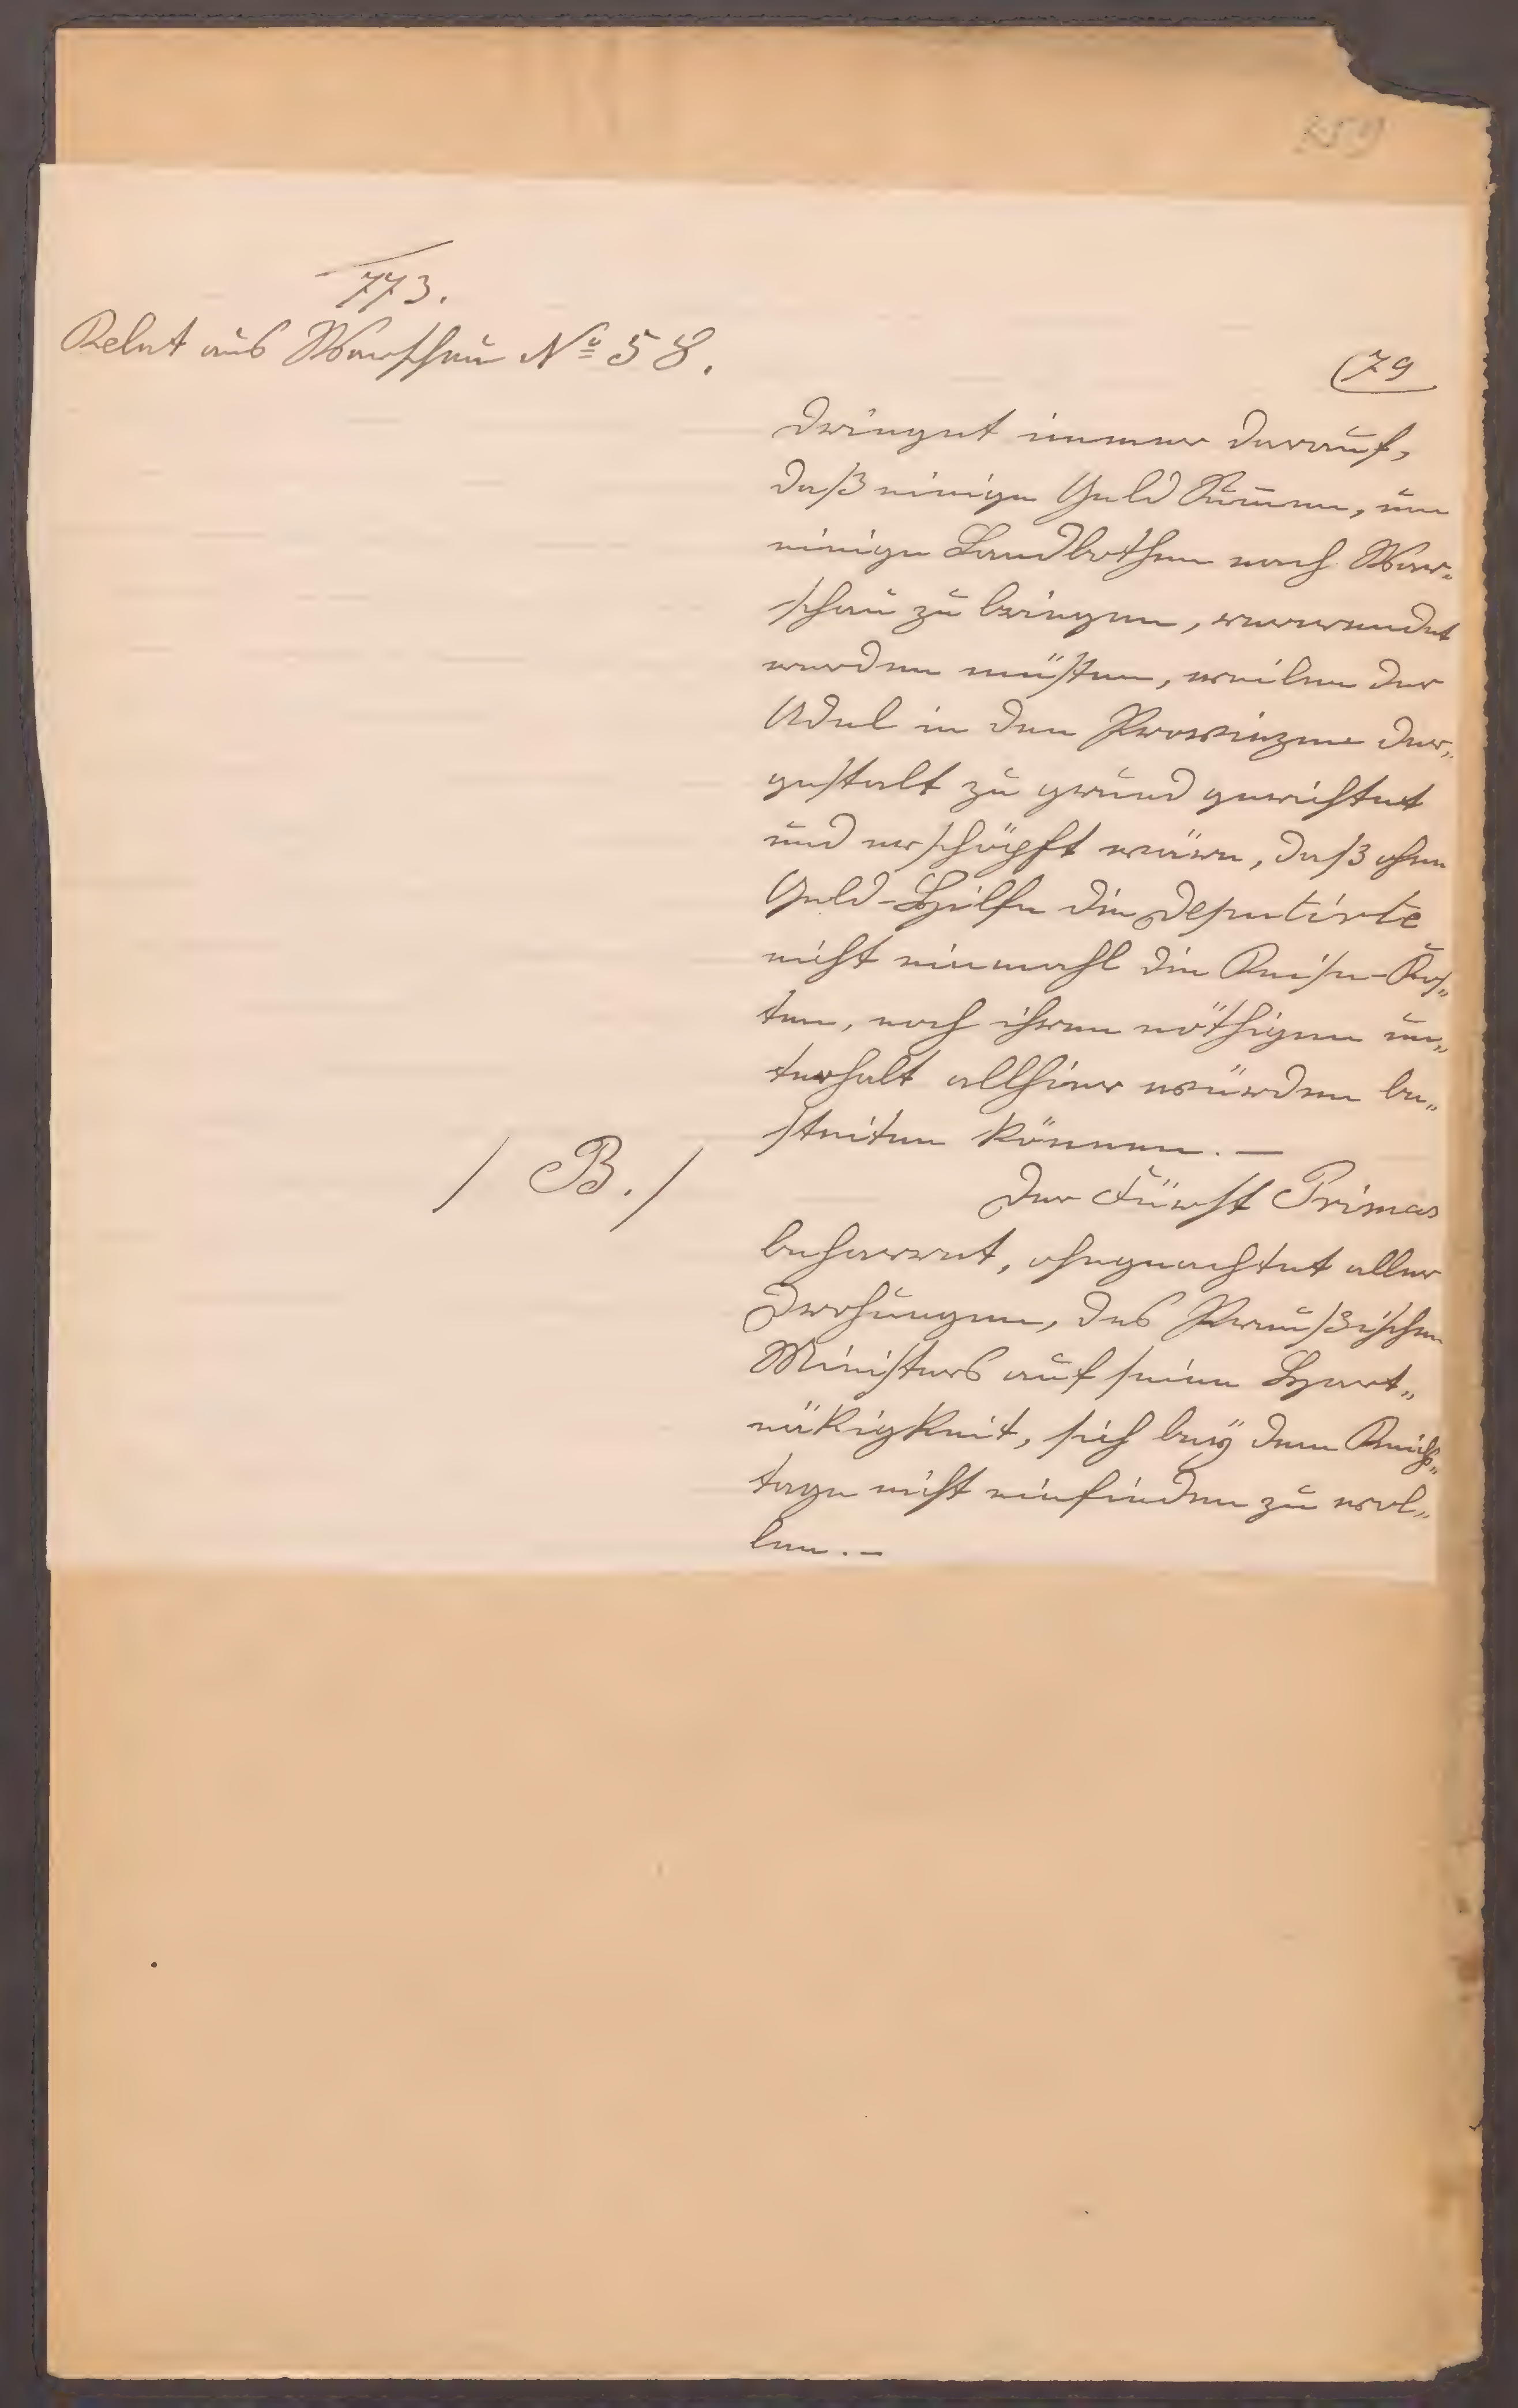 359
773.
Relat aus Warschau No 58.
79
dringet immer darauf,
daß einige Geld Summen, um
einige Landbothen nach War-
schau zu bringen, verwendet
werden müsten, weilen der
Adel in den Provinzen der„
gestalt zu grund gerichtet
und erschöpft wäre, daß ohne
Geld-Hilfe die Deputirte
nicht einmahl die Reise-Kos„
ten, noch ihren nöthigen un„
terhalt allhier würden be„
streiten können.—
/ B. /
Der Fürst Primas
beharret, ohngeachtet aller
Drohungen, des Preußischen
Ministers auf seine Hart„
näkigkeit, sich beÿ dem Reichs„
tage nicht einfinden zu wol„
len.—